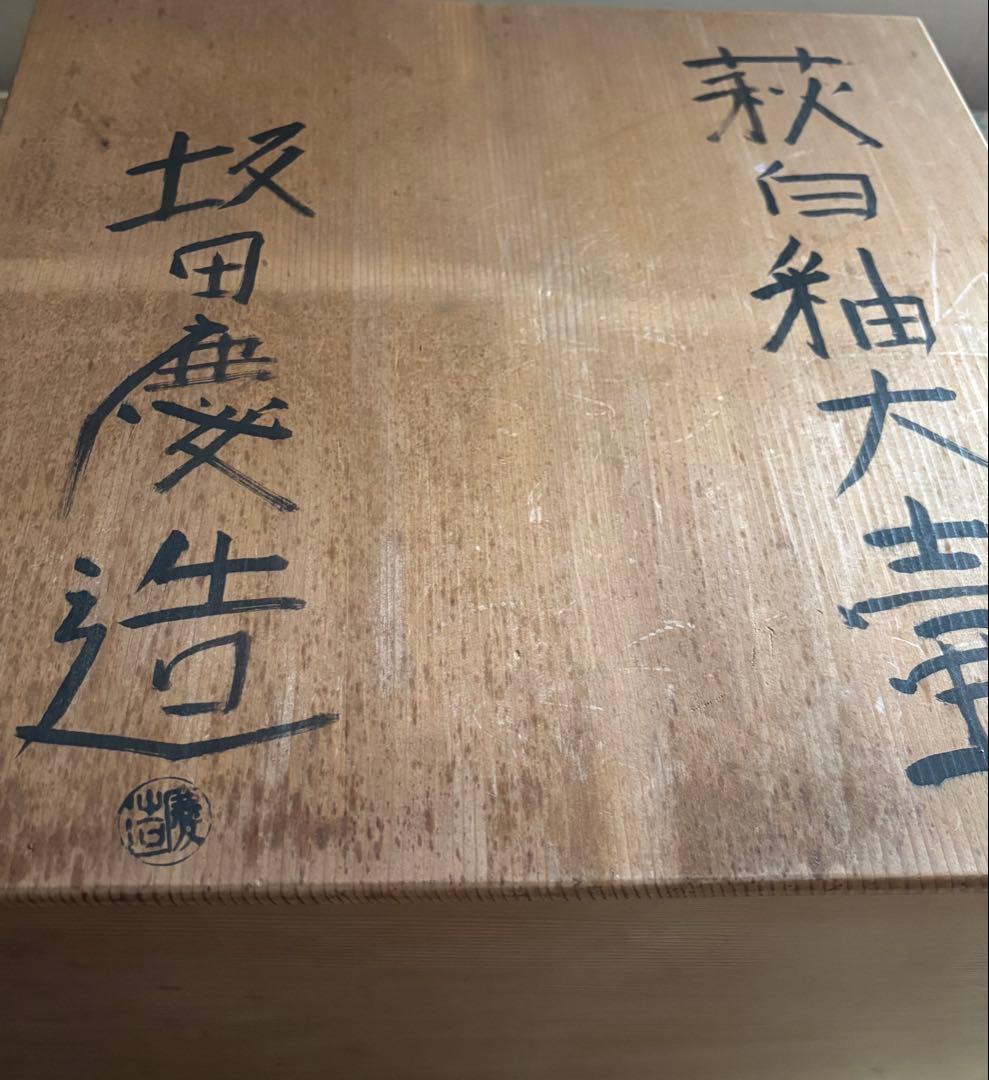 萩白釉大壷
坂田慶造
慶造